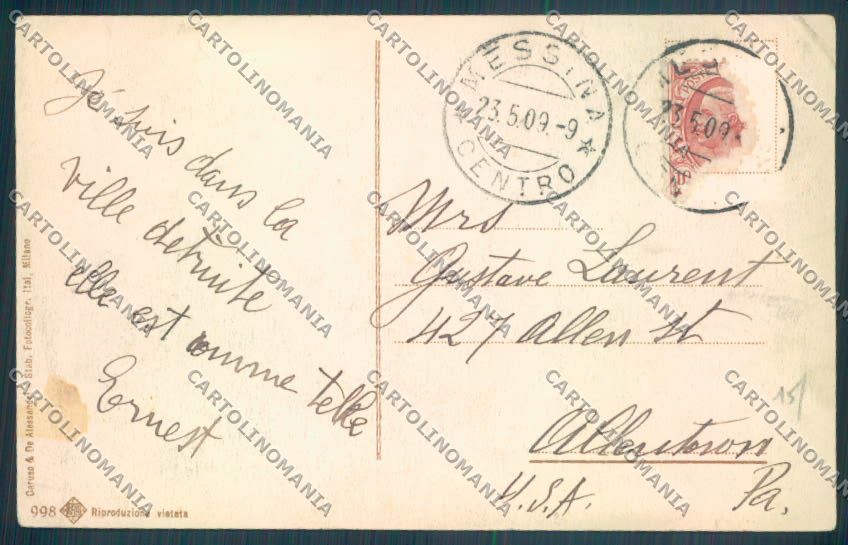 Je suis dans la
ville detruite
elle est comme telle
Ernest
MESSINA
23.5.09.-9
CENTRO
23.5.09.
Mrs
Gustave Laurent
427 Allen St
Allentown
Pa.
U.S.A.
15/
Caruso & De Alessandri Stab. Fotocollogr. Ital. Milano
998 Riproduzione vietata
CARTOLINOMANIA